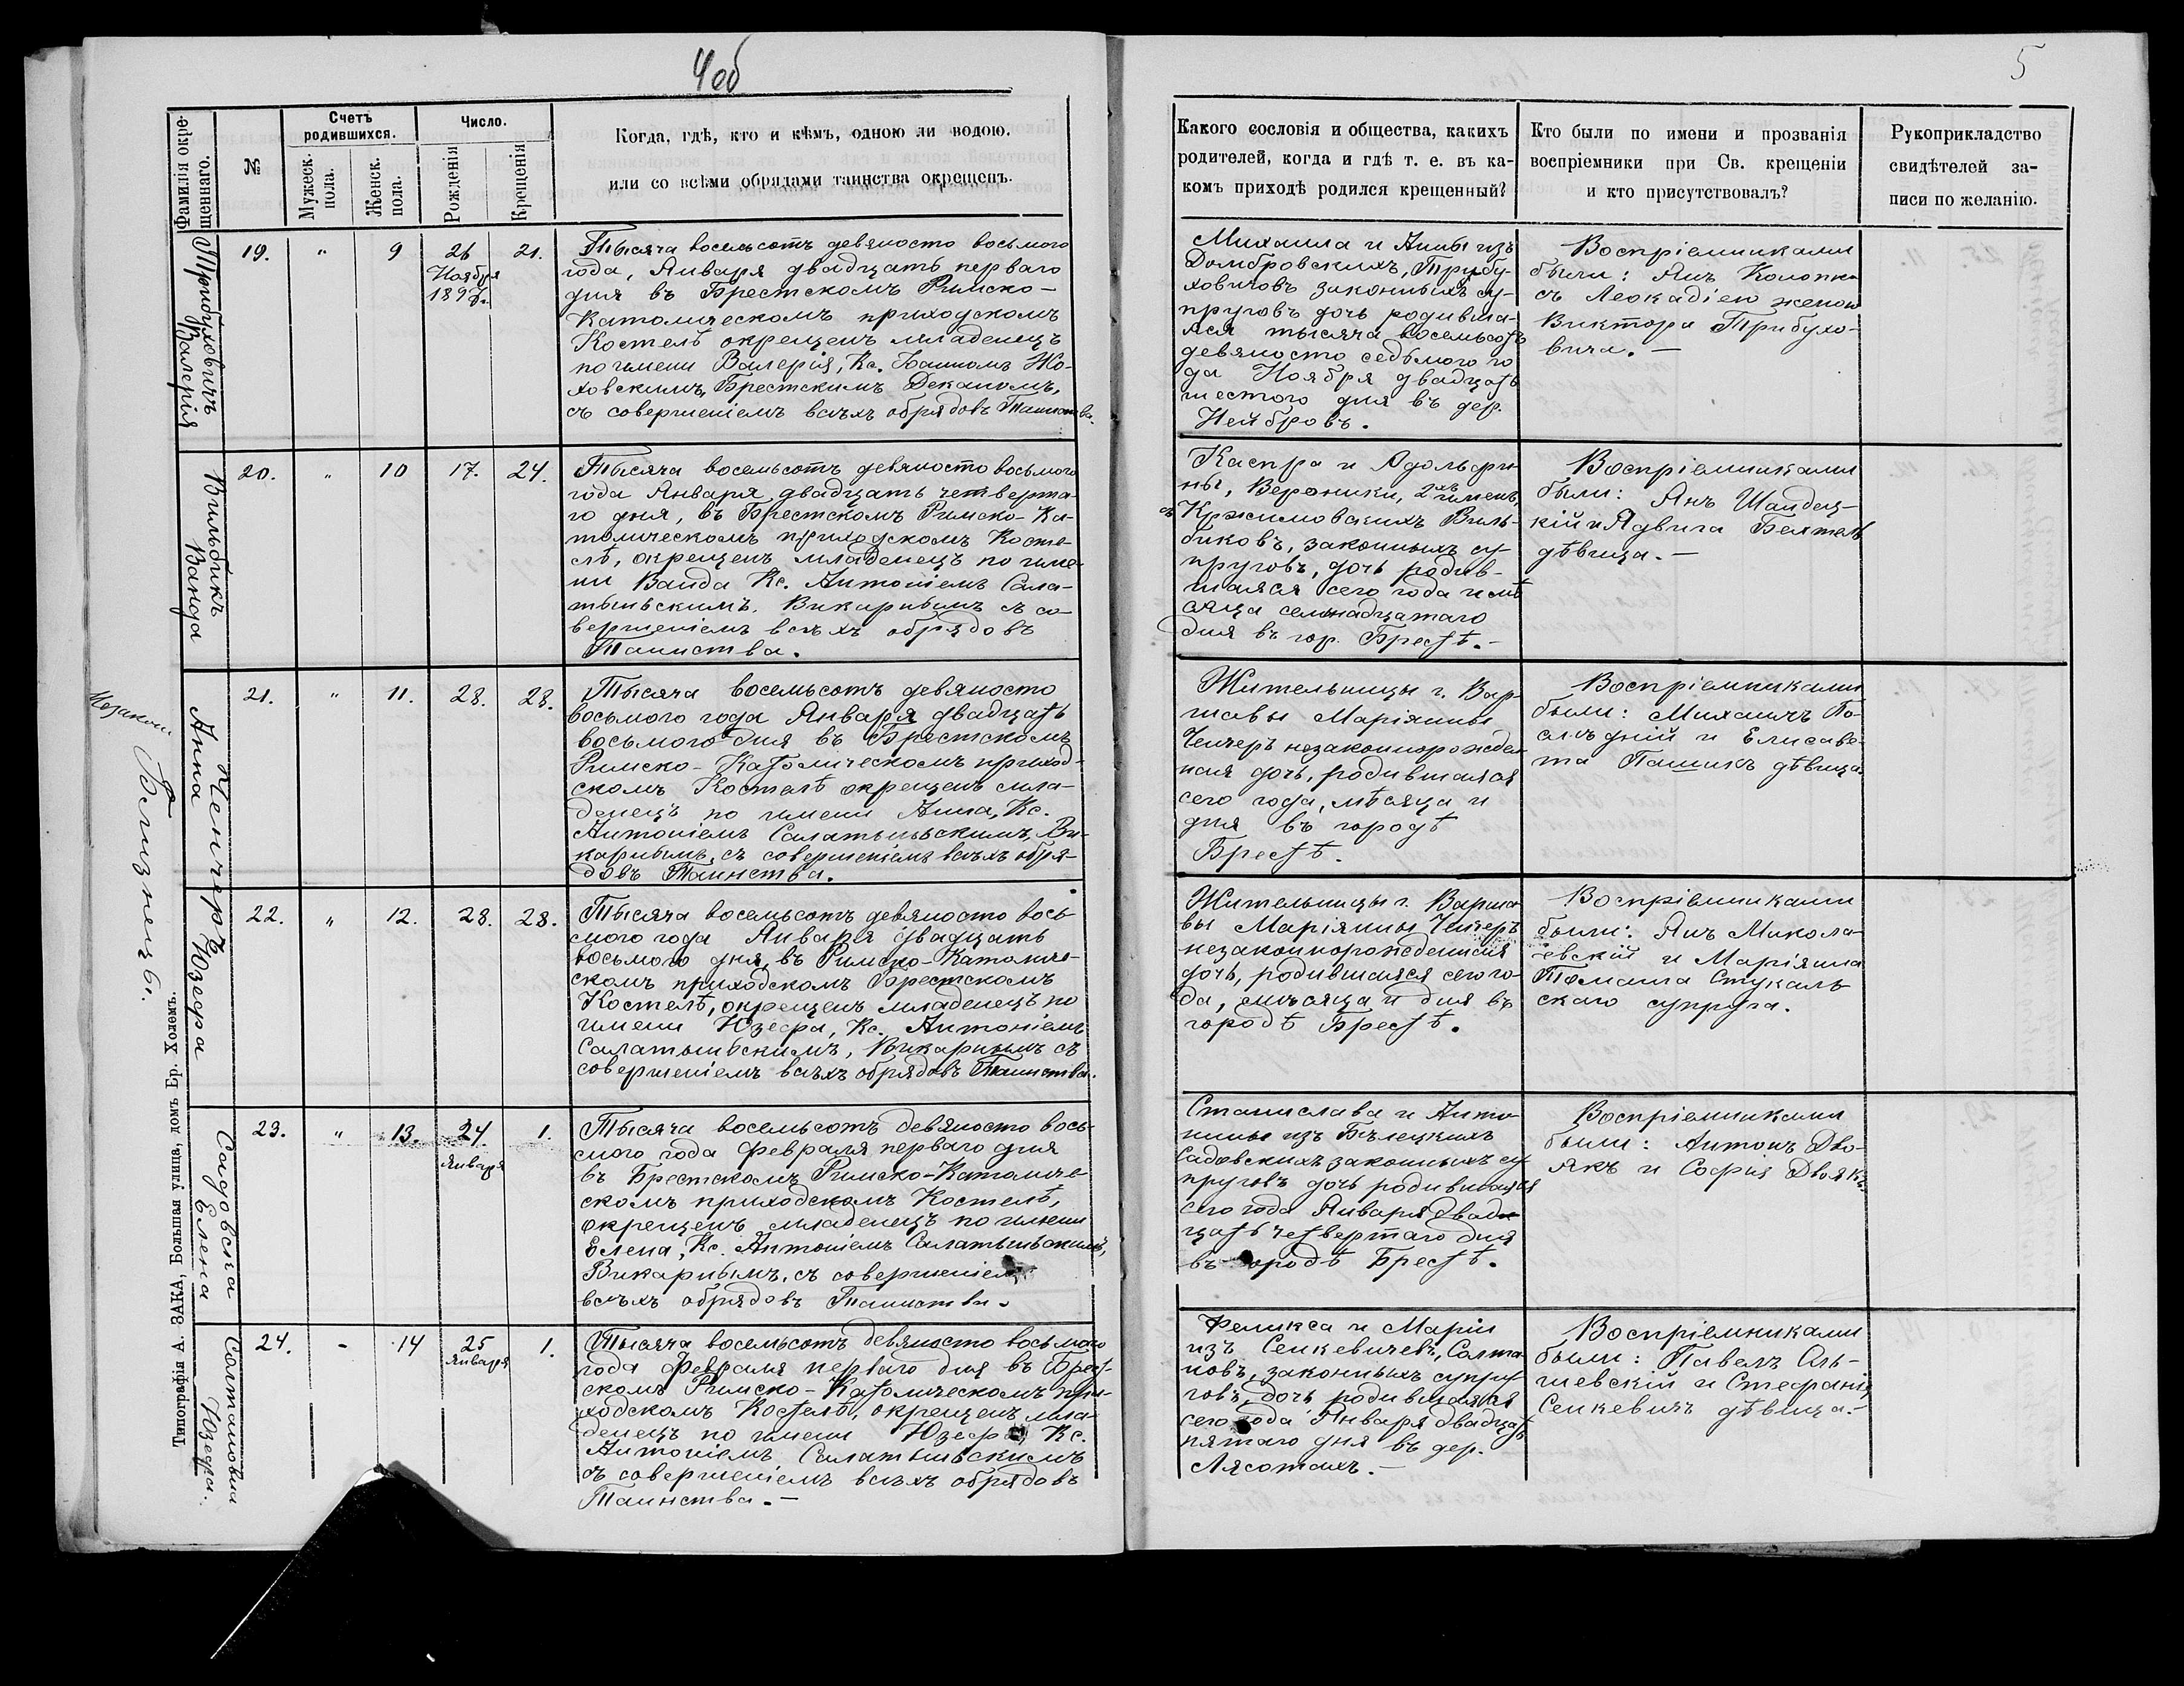 4об
Фамилія окре-
щеннаго.
№
Счетъ
родившихся.
Мужеск.
пола.
Женск.
пола.
Число.
Рожденія
Крещенія
Когда, гдѣ, кто и кѣмъ, одною ли водою.
или со всѣми обрядами таинства окрещенъ.
Трибуховичъ
Валерія
19.
"
9
26
Ноября
1897 г.
21.
Тысяча восемьсотъ девяносто восьмого
года, Января двадцать перваго
дня въ Брестскомъ Римско-
Католическомъ приходскомъ
Костелѣ окрещенъ младенецъ
по имени Валерія, Кс. Жо-
ховскимъ, Брестскимъ Деканомъ,
съ совершеніемъ всѣхъ обрядовъ Таинства.
Вильбикъ
Ванда
20.
"
10
17.
24.
Тысяча восемьсотъ девяносто восьмого
года Января двадцать четверта-
го дня, въ Брестскомъ Римско-Ка-
толическомъ приходскомъ Косте-
лѣ, окрещенъ младенецъ по име-
ни Ванда Кс. Антоніемъ Сала-
тынскимъ, Викарнымъ съ со-
вершеніемъ всѣхъ обрядовъ
Таинства.
Незакон.
Близнецы.
Ченчеръ
Анна
21.
"
11.
28.
28.
Тысяча восемьсотъ девяносто
восьмого года Января двадцать
восьмого дня въ Брестскомъ
Римско-Католическомъ приход-
скомъ Костелѣ окрещенъ мла-
денецъ по имени Анна, Кс.
Антоніемъ Салатынскимъ, Ви-
карнымъ, съ совершеніемъ всѣхъ обря-
довъ Таинства.
Юзефа
22.
"
12.
28.
28.
Тысяча восемьсотъ девяносто вось-
мого года Января двадцать
восьмого дня, въ Римско-Католиче-
скомъ приходскомъ Брестскомъ
Костелѣ, окрещенъ младенецъ по
имени Юзефа, Кс. Антоніемъ
Салатынскимъ, Викарнымъ съ
совершеніемъ всѣхъ обрядовъ Таинства.
Садовска
Елена
23.
"
13.
24.
Января
1.
Тысяча восемьсотъ девяносто вось-
мого года Февраля перваго дня
въ Брестскомъ Римско-Католиче-
скомъ приходскомъ Костелѣ,
окрещенъ младенецъ по имени
Елена, Кс. Антоніемъ Салатынскимъ,
Викарнымъ, съ совершеніемъ
всѣхъ обрядовъ Таинства.
Солтановна
Юзефа.
24.
-
14
25
Января
1.
Тысяча восемьсотъ девяносто восьмого
года Февраля перваго дня въ Брест-
скомъ Римско-Католическомъ при-
ходскомъ Костелѣ, окрещенъ мла-
денецъ по имени Юзефа, Кс.
Антоніемъ Салатынскимъ
съ совершеніемъ всѣхъ обрядовъ
Таинства.-
Типографія А. ЗАКА, Большая улица, домъ Бр. Холемъ.
5
Какого сословія и общества, какихъ
родителей, когда и гдѣ т. е. въ ка-
комъ приходѣ родился крещенный?
Кто были по имени и прозванія
воспріемники при Св. крещеніи
и кто присутствовалъ?
Рукоприкладство
свидѣтелей за-
писи по желанію.
Михаила и Анны изъ
Домбровскихъ, Трибу-
ховичовъ законныхъ су-
пруговъ дочь родивша-
яся тысяча восемьсотъ
девяносто седьмого го-
да Ноября двадцать
шестого дня въ дер.
Нейбровъ.
Воспріемниками
были: Янъ Конопка
съ Леокадіею женою
Виктора Трибухо-
вича.-
Каспра и Адольфи-
ны, Вероники, 2хъ именъ,
съ Кржимовскихъ Виль-
биковъ, законныхъ су-
пруговъ, дочь родив-
шаяся сего года и мѣ-
сяца семнадцатаго
дня въ гор. Брестѣ.-
Воспріемниками
были: Янъ Шандец-
кій и Ядвига
дѣвица.-
Жительницы г. Вар-
шавы Маріянны
Ченчеръ незаконнорожден-
ная дочь, родившаяся
сего года, мѣсяца и
дня въ городѣ
Брестѣ.
Воспріемниками
были: Михаилъ По-
слѣдній и Елисаве-
та Пашикъ дѣвица
Жительницы г. Варша-
вы Маріянны Ченчеръ
незаконнорожденная
дочь, родившаяся сего го-
да, мѣсяца и дня въ
городѣ Брестѣ.
Воспріемниками
были: Янъ Микола-
евскій и Маріянна
Томаша Стукаль-
скаго супруга.
Станислава и Анто-
нины изъ Бѣлецкихъ
Садовскихъ законныхъ су-
пруговъ дочь родившаяся
сего года Января двад-
цать четвертаго дня
въ городѣ Брестѣ.
Воспріемниками
были: Антонъ Дво-
якъ и Софія Двоякъ.
Феликса и Маріи
изъ Сенкевичевъ, Солта-
новъ, законныхъ супру-
говъ, дочь родившаяся
сего года Января двадцать
пятаго дня въ дер.
Лясотахъ.-
Воспріемниками
были: Павелъ Оль-
шевскій и Стефанія
Сенкевичъ дѣвица.-